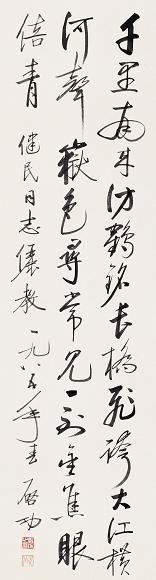 千里南来访鹤铭长桥飞跨大江横
河声岳色寻常见一到金焦眼
倍青 健民同志仪教 一九八五年春 启功